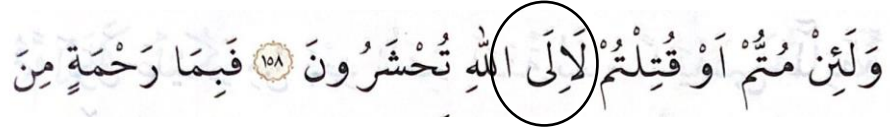 وَلَئِنْ مُتُّمْ اَوْ قُتِلْتُمْ لَاِلَى اللّٰهِ تُحْشَرُونَ ﴿١٥٨﴾ فَبِمَا رَحْمَةٍ مِنَ